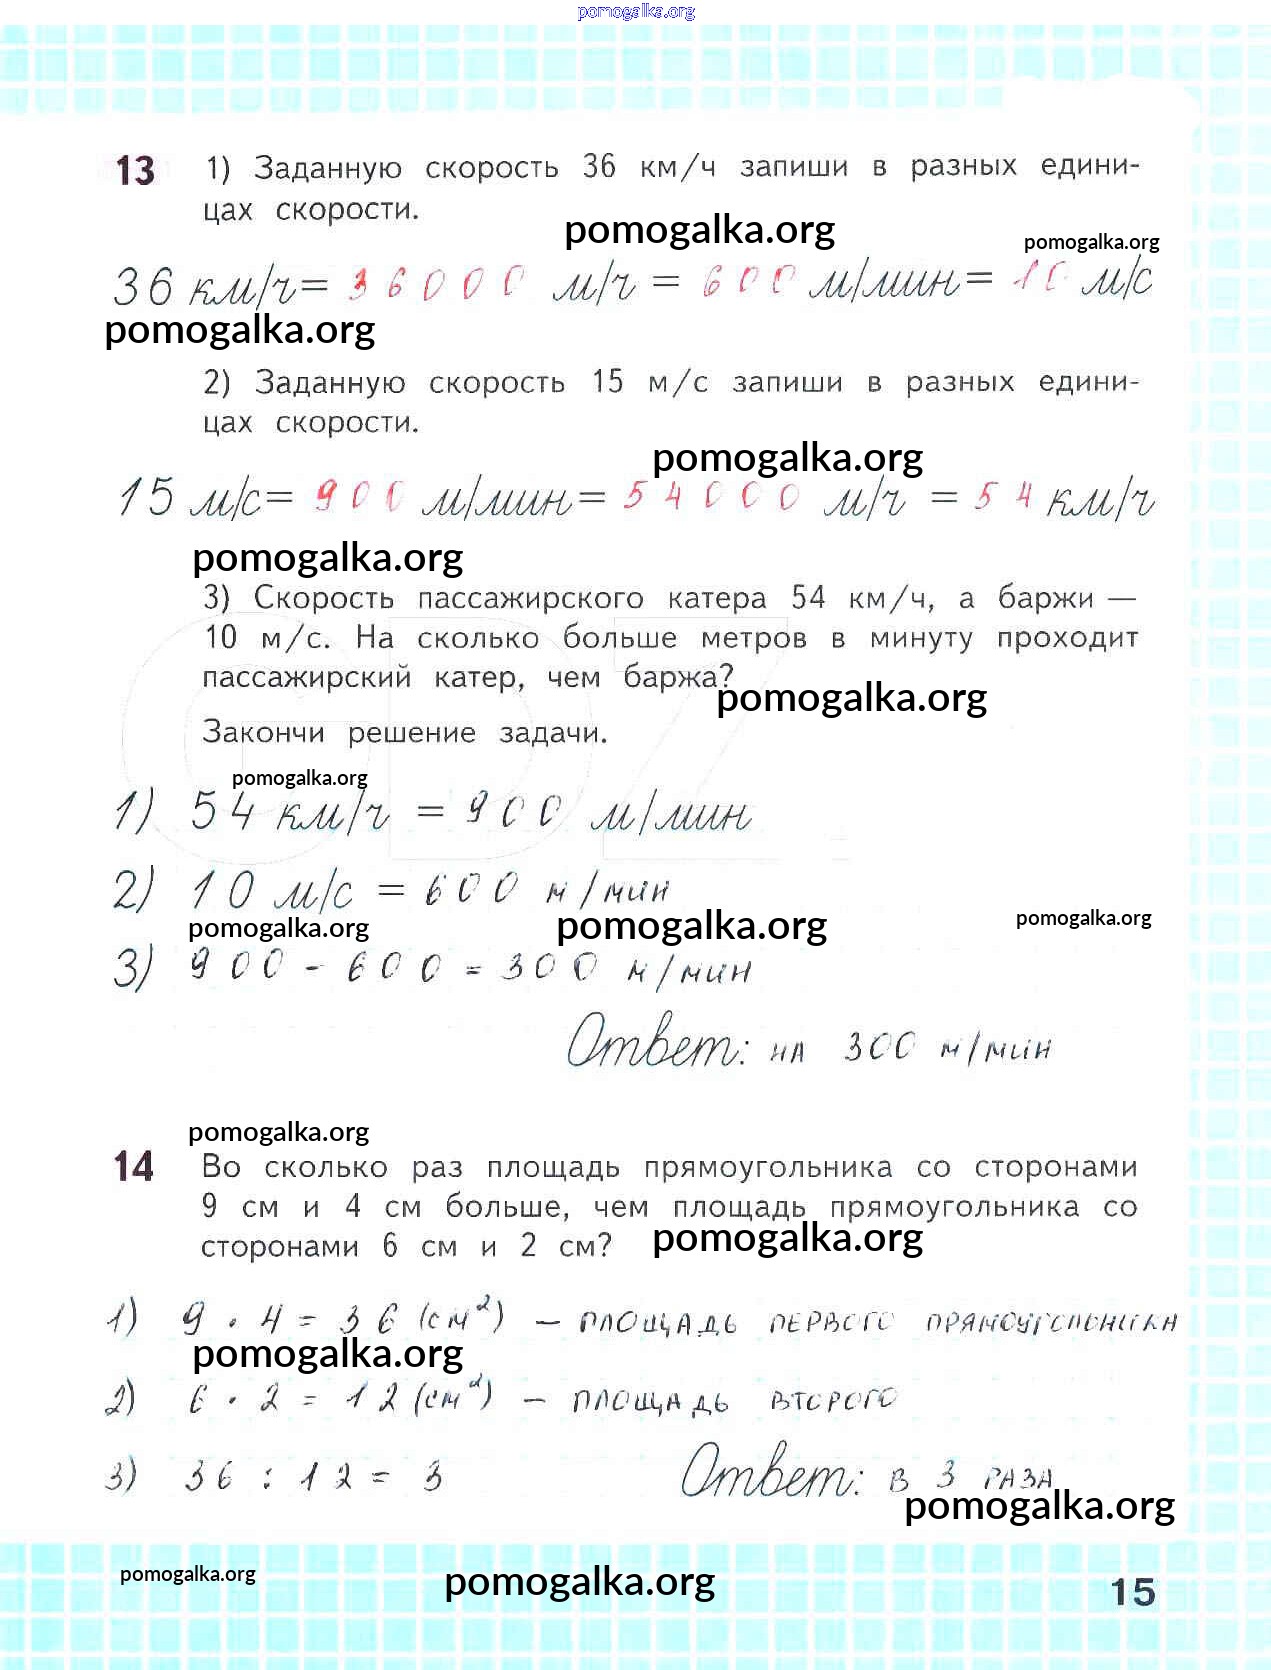 pomogalka.org
13 1) Заданную скорость 36 км/ч запиши в разных едини-
цах скорости.
pomogalka.org pomogalka.org
36 км/ч = 36000 м/ч = 600 м/мин = 10 м/с
pomogalka.org
2) Заданную скорость 15 м/с запиши в разных едини-
цах скорости.
pomogalka.org
15 м/с = 900 м/мин = 54000 м/ч = 54 км/ч
pomogalka.org
3) Скорость пассажирского катера 54 км/ч, а баржи —
10 м/с. На сколько больше метров в минуту проходит
пассажирский катер, чем баржа?
pomogalka.org
Закончи решение задачи.
pomogalka.org
1) 54 км/ч = 900 м/мин
2) 10 м/с = 600 м/мин
pomogalka.org pomogalka.org pomogalka.org
3) 900 - 600 = 300 м/мин
Ответ: на 300 м/мин
pomogalka.org
14 Во сколько раз площадь прямоугольника со сторонами
9 см и 4 см больше, чем площадь прямоугольника со
сторонами 6 см и 2 см?
pomogalka.org
1) 9 · 4 = 36 (см²) — площадь первого прямоугольника
pomogalka.org
2) 6 · 2 = 12 (см²) — площадь второго
3) 36 : 12 = 3 Ответ: в 3 раза
pomogalka.org
pomogalka.org pomogalka.org
15